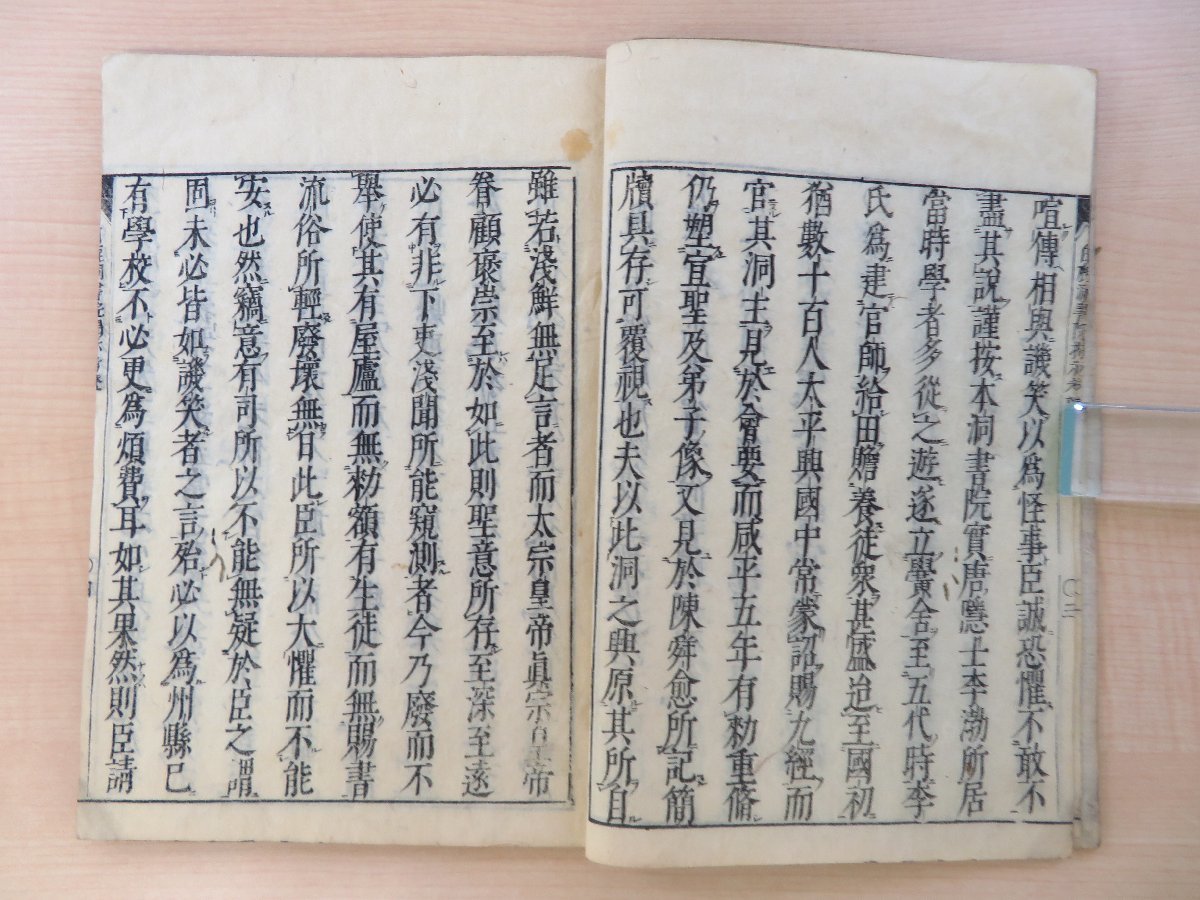 喧傳相與譏笑以爲怪事臣誠恐懼不敢不
盡其說謹按本洞書院實唐隱士李渤所居
當時學者多從之遊遂立黌舍至五代時李
氏爲建官師給田贍養徒衆甚盛迨至國初
猶數十百人太平興國中常蒙詔賜九經而
官其洞主見於會要而咸平五年有勑重脩
仍塑宣聖及弟子像又見於陳舜愈所記簡
牘具存可覆視也夫以此洞之興原其所自
雖若淺鮮無足言者而太宗皇帝眞宗皇帝
眷顧褒崇至於如此則聖意所存至深至遠
必有非下吏淺聞所能窺測者今乃廢而不
舉使其有屋廬而無勑額有生徒而無賜書
流俗所輕廢壞無日此臣所以大懼而不能
安也然竊意有司所以不能無疑於臣之謂
固未必皆如譏笑者之言殆必以爲州縣已
有學校不必更爲煩費耳如其果然則臣請